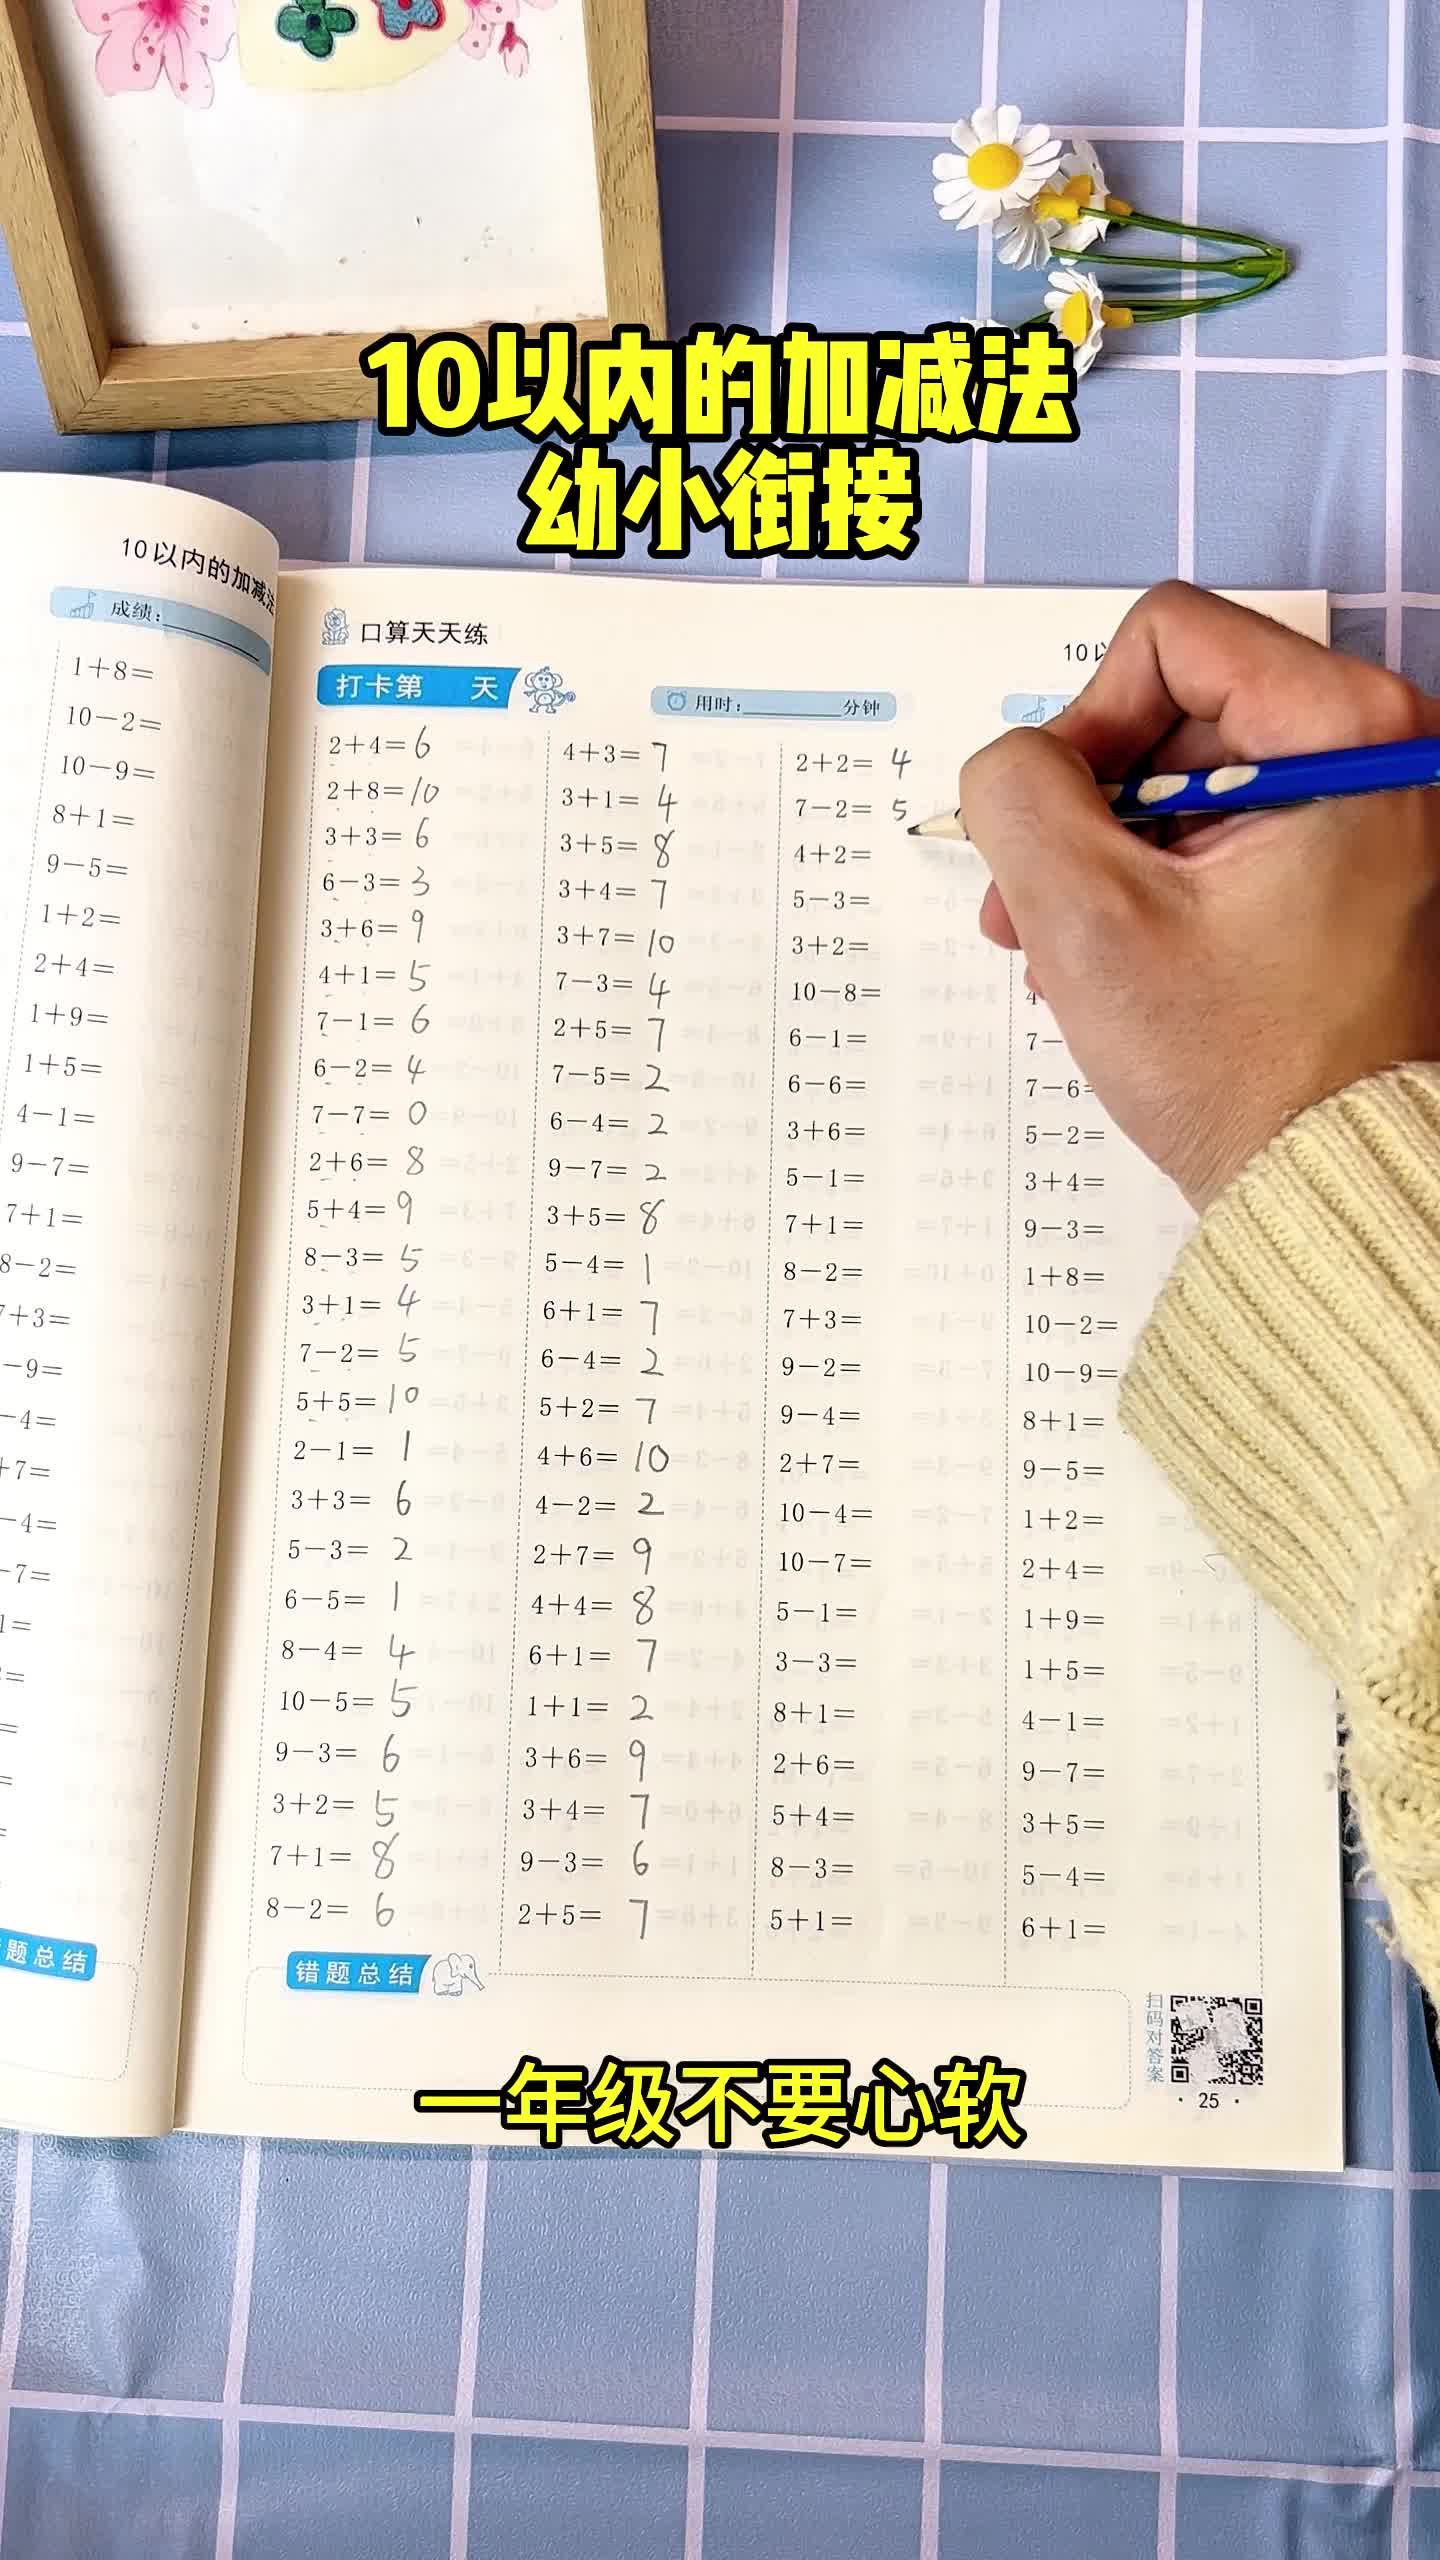 10以内的加减法
幼小衔接
10以内的加减法
成绩:
1+8=
10-2=
10-9=
8+1=
9-5=
1+2=
2+4=
1+9=
1+5=
4-1=
9-7=
7+1=
8-2=
7+3=
-9=
-4=
+7=
-4=
-7=
1=
口算天天练
10以
打卡第 天
用时: 分钟
2+4=6
2+8=10
3+3=6
6-3=3
3+6=9
4+1=5
7-1=6
6-2=4
7-7=0
2+6=8
5+4=9
8-3=5
3+1=4
7-2=5
5+5=10
2-1=1
3+3=6
5-3=2
6-5=1
8-4=4
10-5=5
9-3=6
3+2=5
7+1=8
8-2=6
4+3=7
3+1=4
3+5=8
3+4=7
3+7=10
7-3=4
2+5=7
7-5=2
6-4=2
9-7=2
3+5=8
5-4=1
6+1=7
6-4=2
5+2=7
4+6=10
4-2=2
2+7=9
4+4=8
6+1=7
1+1=2
3+6=9
3+4=7
9-3=6
2+5=7
2+2=4
7-2=5
4+2=
5-3=
3+2=
10-8=
6-1=
6-6=
3+6=
5-1=
7+1=
8-2=
7+3=
9-2=
9-4=
2+7=
10-4=
10-7=
5-1=
3-3=
8+1=
2+6=
5+4=
8-3=
5+1=
4
7-
7-6=
5-2=
3+4=
9-3=
1+8=
10-2=
10-9=
8+1=
9-5=
1+2=
2+4=
1+9=
1+5=
4-1=
9-7=
3+5=
5-4=
6+1=
题总结
错题总结
扫码对答案
·25·
一年级不要心软